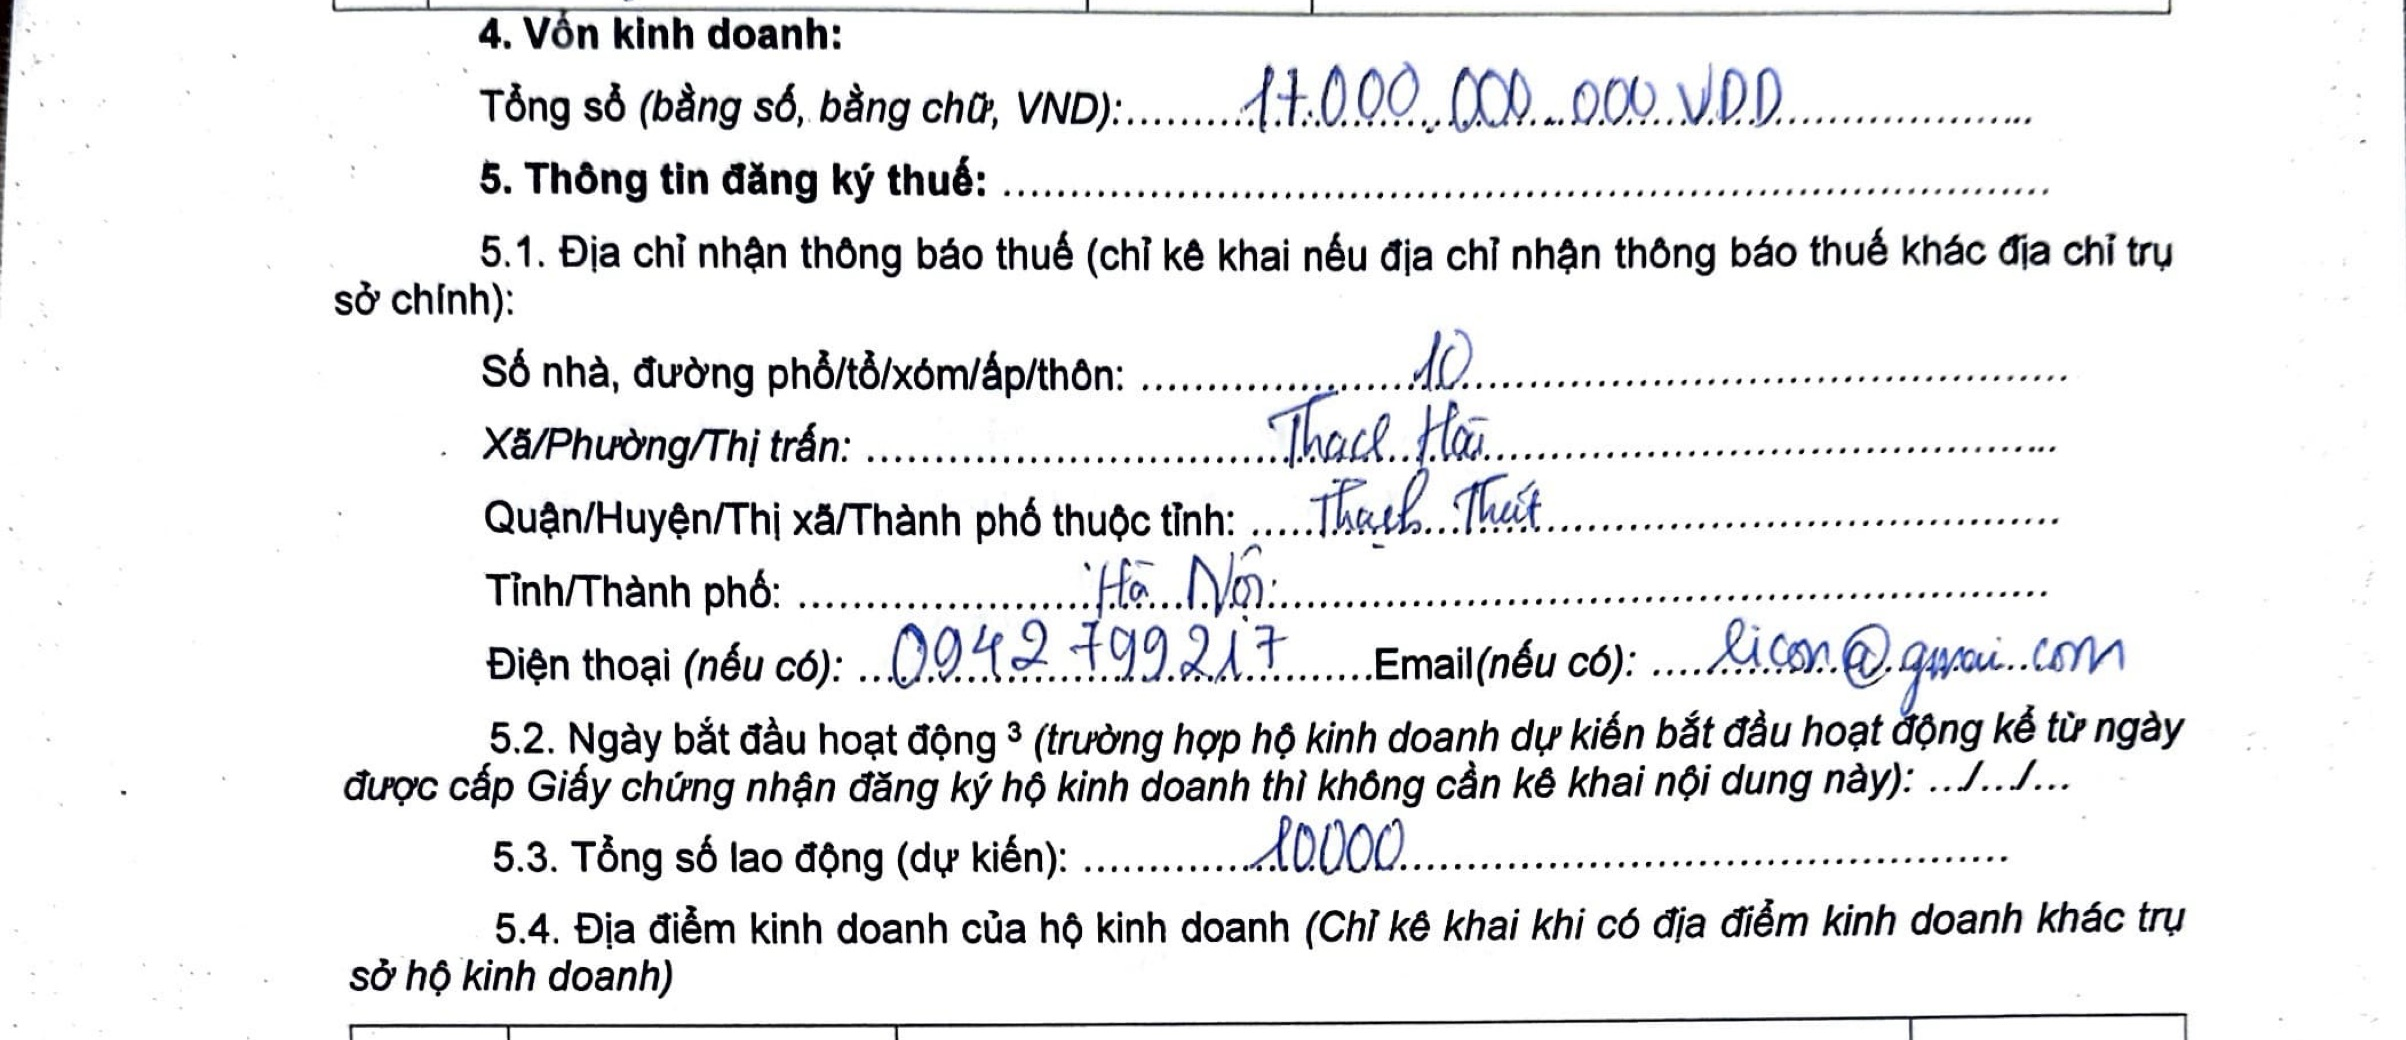 4. Vốn kinh doanh:
Tổng số (bằng số, bằng chữ, VND): 17.000.000.000 VDD
5. Thông tin đăng ký thuế:
5.1. Địa chỉ nhận thông báo thuế (chỉ kê khai nếu địa chỉ nhận thông báo thuế khác địa chỉ trụ
sở chính):
Số nhà, đường phố/tổ/xóm/ấp/thôn: 10
Xã/Phường/Thị trấn: Thach Hòa
Quận/Huyện/Thị xã/Thành phố thuộc tỉnh: Thạch Thất
Tỉnh/Thành phố: Hà Nội
Điện thoại (nếu có): 0942799217 Email(nếu có): licon@gmai.com
5.2. Ngày bắt đầu hoạt động ³ (trường hợp hộ kinh doanh dự kiến bắt đầu hoạt động kể từ ngày
được cấp Giấy chứng nhận đăng ký hộ kinh doanh thì không cần kê khai nội dung này): .../.../...
5.3. Tổng số lao động (dự kiến): 10000
5.4. Địa điểm kinh doanh của hộ kinh doanh (Chỉ kê khai khi có địa điểm kinh doanh khác trụ
sở hộ kinh doanh)